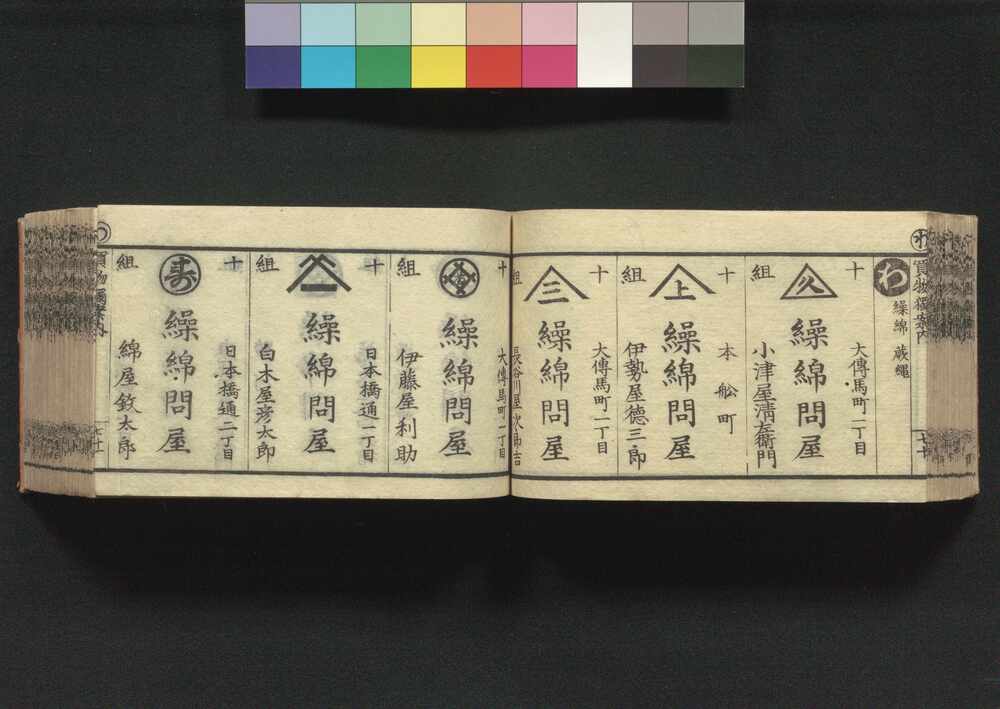 わ
買物獨案内
七十
わ
繰綿 蔵繩
十
組
久
大傳馬町二丁目
繰綿問屋
小津屋清左衛門
十
組
上
本舩町
繰綿問屋
伊勢屋徳三郎
十
組
三
大傳馬町一丁目
繰綿問屋
長谷川屋次郎吉
十
組
大傳馬町一丁目
繰綿問屋
伊藤屋利助
十
組
日本橋通一丁目
繰綿問屋
白木屋彦太郎
十
組
寿
日本橋通二丁目
繰綿問屋
綿屋欽太郎
買物獨案内